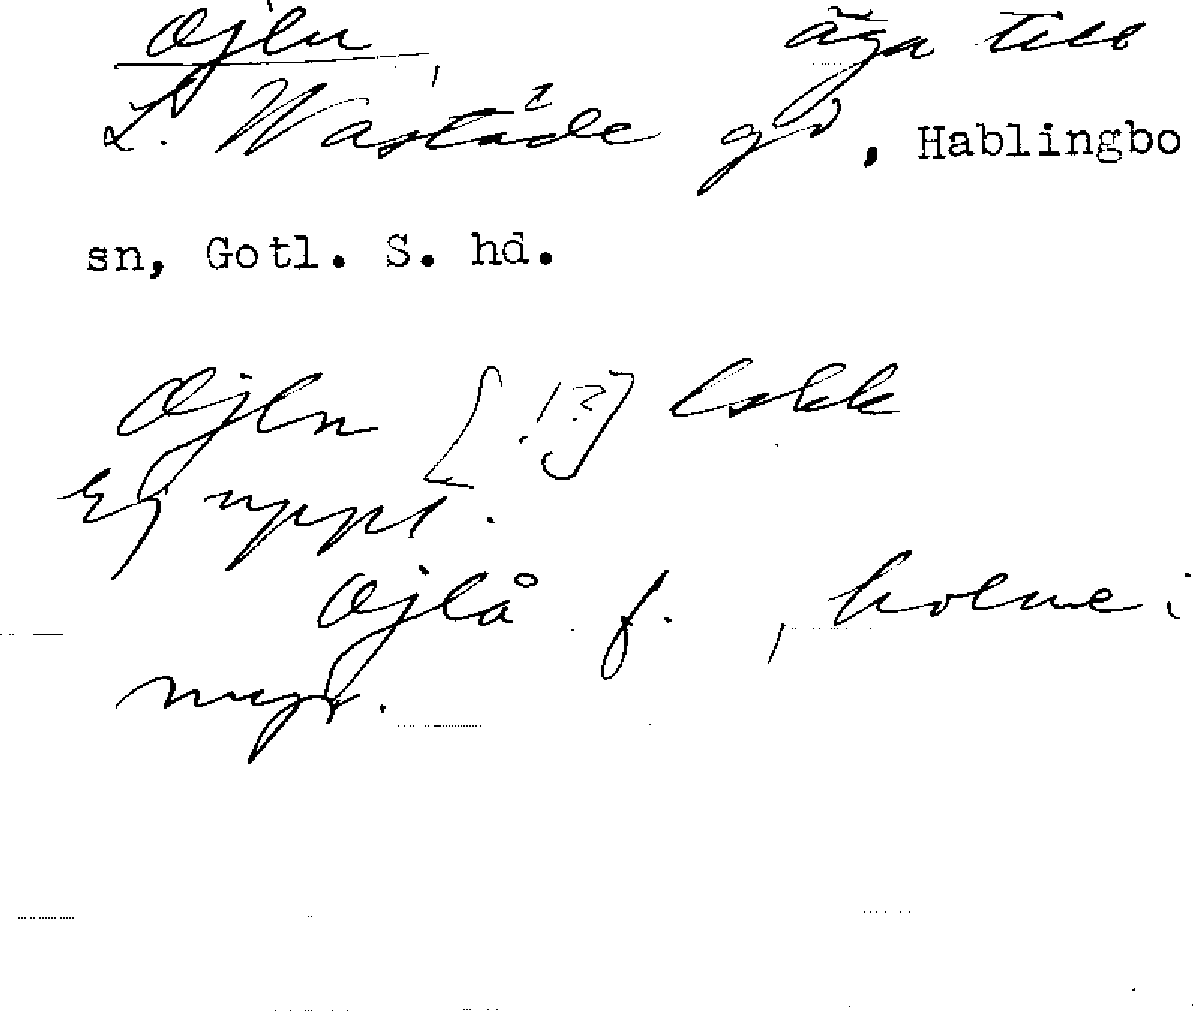 Ojln, äga till
L. Wastäde gd, Hablingbo
sn, Gotl. S. hd.
Ojln [!?] Lskk
Ej uppt.
Ojlå f., holme i
myr.